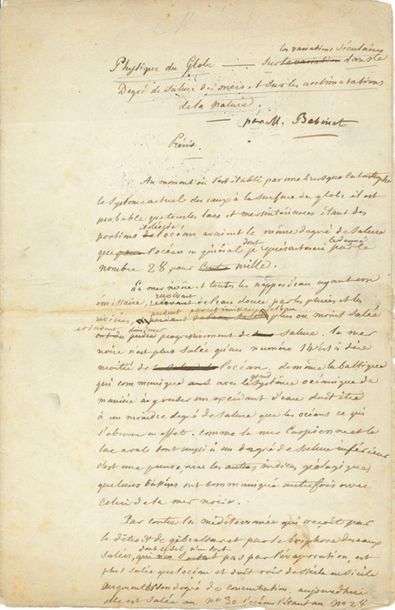 les variations séculaires
Physique du Globe — Sur la variation dans le
Degré de Salure des mers et sur les acclimatations
de la nature.
par M. Babinet
Précis.
Au moment où s'est établi par une brusque catastrophe
le Système actuel des eaux à la surface du globe il est
probable que tous les lacs et mers intérieures étant des
portions de l'océan avaient le même degré de Salure
que l'océan en général dont je représenterai le degré par le
nombre 28 pour mille.
La mer noire et toutes les
recevant de l'eau douce par les pluies et les
rivières, plus ou moins Salée
ont dû perdre progressivement de leur Salure. la mer
noire n'est plus Salée qu'au numéro 14 c'est à dire
moitié de l'océan, de même la baltique
qui communique avec le grand Système océanique de
manière à
à un moindre degré de Salure que les océans ce qui
s'observe en effet. comme la mer Caspienne et le
lac aral sont aussi à un degré de Salure inférieur
c'est une preuve, avec les autres indices géologiques,
que leurs bassins ont communiqué autrefois avec
celui de la mer noire.
Par contre la méditerranée qui reçoit par
le détroit de gibraltar et par le bosphore des eaux
Salées,
pas par l'évaporation, est
plus Salée que l'océan et doit voir de Siècle en Siècle
augmenter Son degré de concentration aujourd'hui
elle est Salée au n° 30 l'océan étant au n° 28